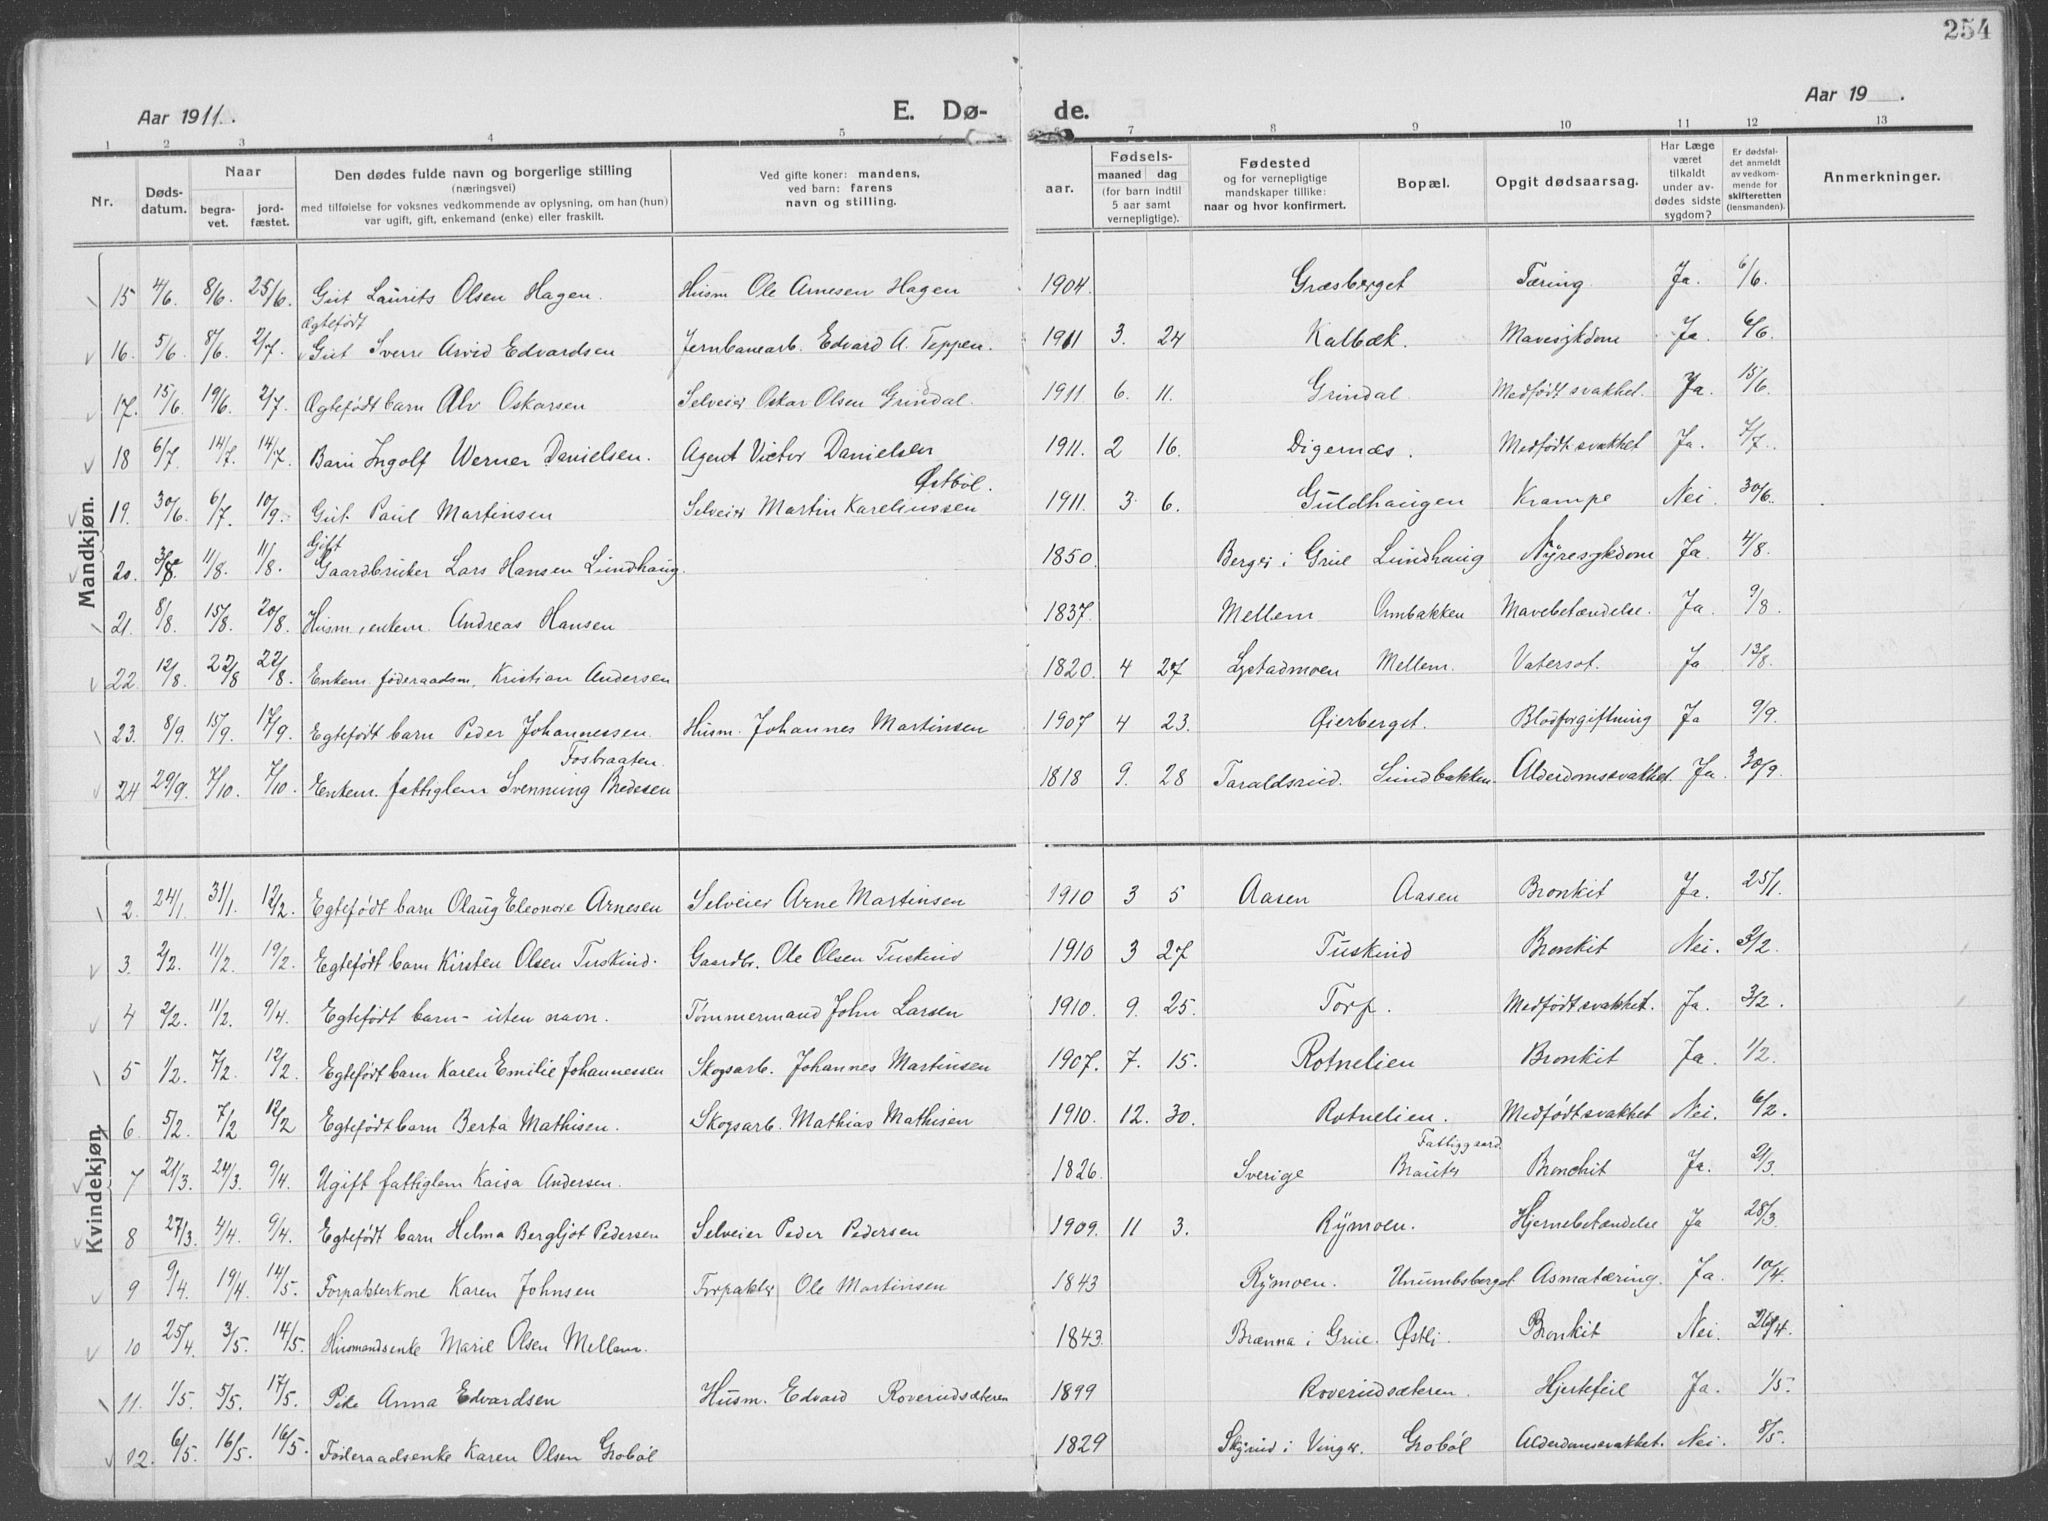 254
Aar 1911. E. Dø- de. Aar 19 .
1 2 3 4 5 7 8 9 10 11 12 13
Nr. Døds-datum. Naar begra-vet. jord-fæstet. Den dødes fulde navn og borgerlige stilling (næringsvei) med tilføielse for voksnes vedkommende av oplysning, om han (hun) var ugift, gift, enkemand (enke) eller fraskilt. Ved gifte koner: mandens, ved barn: farens navn og stilling. aar. Fødsels- maaned dag (for barn indtil 5 aar samt vernepligtige). Fødested og for vernepligtige mandskaper tillike: naar og hvor konfirmert. Bopæl. Opgit dødsaarsag. Har Læge været tilkaldt under av-dødes sidste sygdom? Er dødsfal-det anmeldt av vedkom-mende for skifteretten (lensmanden). Anmerkninger.
Mandkjøn.
15 4/6. 8/6. 25/6. Gut Laurits Olsen Hagen. Husm Ole Arnesen Hagen 1904. Græsberget Tæring Ja. 6/6.
Ægtefødt
16. 5/6. 8/6. 2/7. Gut Sverre Arvid Edvardsen Jernbanearb. Edvard A. Teppen. 1911 3. 24 Kalbæk. Mavesykdom Ja. 6/6.
17. 15/6. 19/6. 2/7. Ægtefødt barn Alv Oskarsen Selveier Oskar Olsen Grindal. 1911. 6. 11. Grindal Medfødt svakhet. Ja. 15/6.
18 6/7. 14/7. 14/7. Barn Ingolf Werner Danielsen. Agent Victor Danielsen 1911. 2 16. Digernæs. Medfødt svakhet Ja. 7/7.
Østbøl.
19. 30/6. 6/7. 10/9. Gut Paul Martinsen Selveier Martin Kareliussen 1911. 3. 6. Guldhaugen Krampe Nei. 30/6.
Gift
20. 3/8. 11/8. 11/8. Gaardbruker Lars Hansen Lundhaug. 1850. Berger i Grue Lundhaug Nyresykdom Ja. 4/8.
21. 8/8. 15/8. 20/8. Husm, enkem. Andreas Hansen 1837. Mellem Ombakken Mavebetændelse. Ja. 9/8.
22. 12/8. 22/8 22/8. Enkem. føderaadsm. Kristian Andersen 1820. 4 27 Lystadmoen Mellem. Vatersot. Ja 13/8.
23. 8/9. 15/9. 17/9. Egtefødt barn Peder Johannessen. Husm. Johannes Martinsen 1907 4 23. Øierberget. Blodforgiftning Ja 9/9.
Fosbraaten.
24 29/9. 7/10. 7/10. Enkem. fattiglem Svenning Bredesen 1818 9. 28 Taraldsrud. Lundbakken Alderdomssvakhet Ja. 30/9.
Kvindekjøn.
2. 24/1. 31/1. 12/2. Egtefødt barn Olaug Eleonore Arnesen Selveier Arne Martinsen 1910 3 5 Aasen Aasen Bronkit Ja. 25/1.
3. 2/2. 11/2. 19/2. Egtefødt barn Kirsten Olsen Tuskind. Gaardbr. Ole Olsen Tuskind 1910 3 27 Tuskind Bronkit Nei. 3/2.
4 2/2. 11/2. 9/4. Egtefødt barn - uten navn. Tømmermand John Larsen 1910. 9. 25. Torp. Medfødt svakhet. Ja. 3/2.
5 1/2. 7/2. 12/2. Egtefødt barn Karen Emilie Johannessen Skogsarb. Johannes Martinsen 1907. 7. 15. Rotnelien Bronkit Ja. 1/2.
6. 5/2. 7/2 12/2 Egtefødt barn Berta Mathisen. Skogsarb. Mathias Mathisen 1910. 12. 30. Rotnelien. Medfødt svakhet Nei. 6/2.
Fattiggaard.
7 21/3. 24/3. 9/4. Ugift fattiglem Kaisa Andersen. 1826. Sverige Brauter Bronchit Ja. 21/3.
8 27/3. 4/4. 9/4. Egtefødt barn Helma Bergljot Pedersen Selveier Peder Pedersen 1909. 11 3. Rymoen. Hjernebetændelse Ja 28/3.
9 9/4. 19/4. 14/5. Forpakterkone Karen Johnsen Forpakter Ole Martinsen 1843 Rymoen. Unumbsberget Asmatæring. Ja. 10/4.
10 25/4. 3/5. 14/5. Husmandsenke Marie Olsen Mellem. 1843. Brænna i Grue. Østli Bronkit Nei. 26/4.
11. 1/5. 5/5. 17/5. Pike Anna Edvardsen Husm. Edvard Roverudsæteren 1899 Roverudsæteren. Hjertefeil Ja. 1/5.
12. 6/5. 16/5. 16/5. Føderaadsenke Karen Olsen Grobøl 1829 Skyrud i Vinger. Grobøl Alderdomssvakhet. Nei. 8/5.